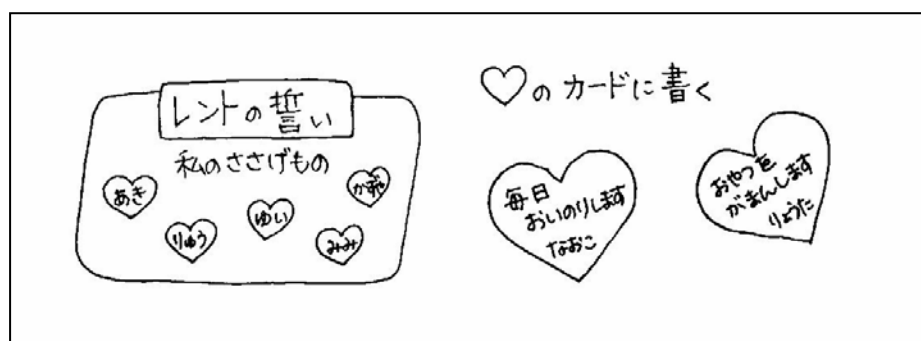 レントの誓い
私のささげもの
あき
りゅう
ゆい
みみ
かずや
♡のカードに書く
毎日
おいのりします
なおこ
おやつを
がまんします
りょうた